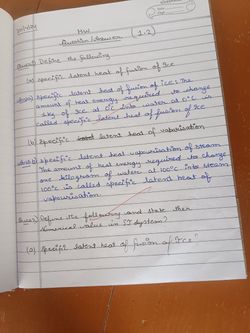 HW
Question/Answer (1.2)
Ques1) Define the following
(a) Specific latent heat of fusion of Ice
Ans(a) Specific latent heat of fusion of ice: The
amount of heat energy required to change
1kg of ice at 0°C into water at 0°C is
called specific latent heat of fusion of Ice
(b) Specific latent heat of vaporisation
Ans(b) Specific latent heat vapourisation of steam
The amount of heat energy required to change
one kilogram of water at 100°C into steam
100°C is called specific latent heat of
vapourisation
Ques2) Define the following and state ther
numerical value in SI system?
(a) Specific latent heat of fusion of Ice